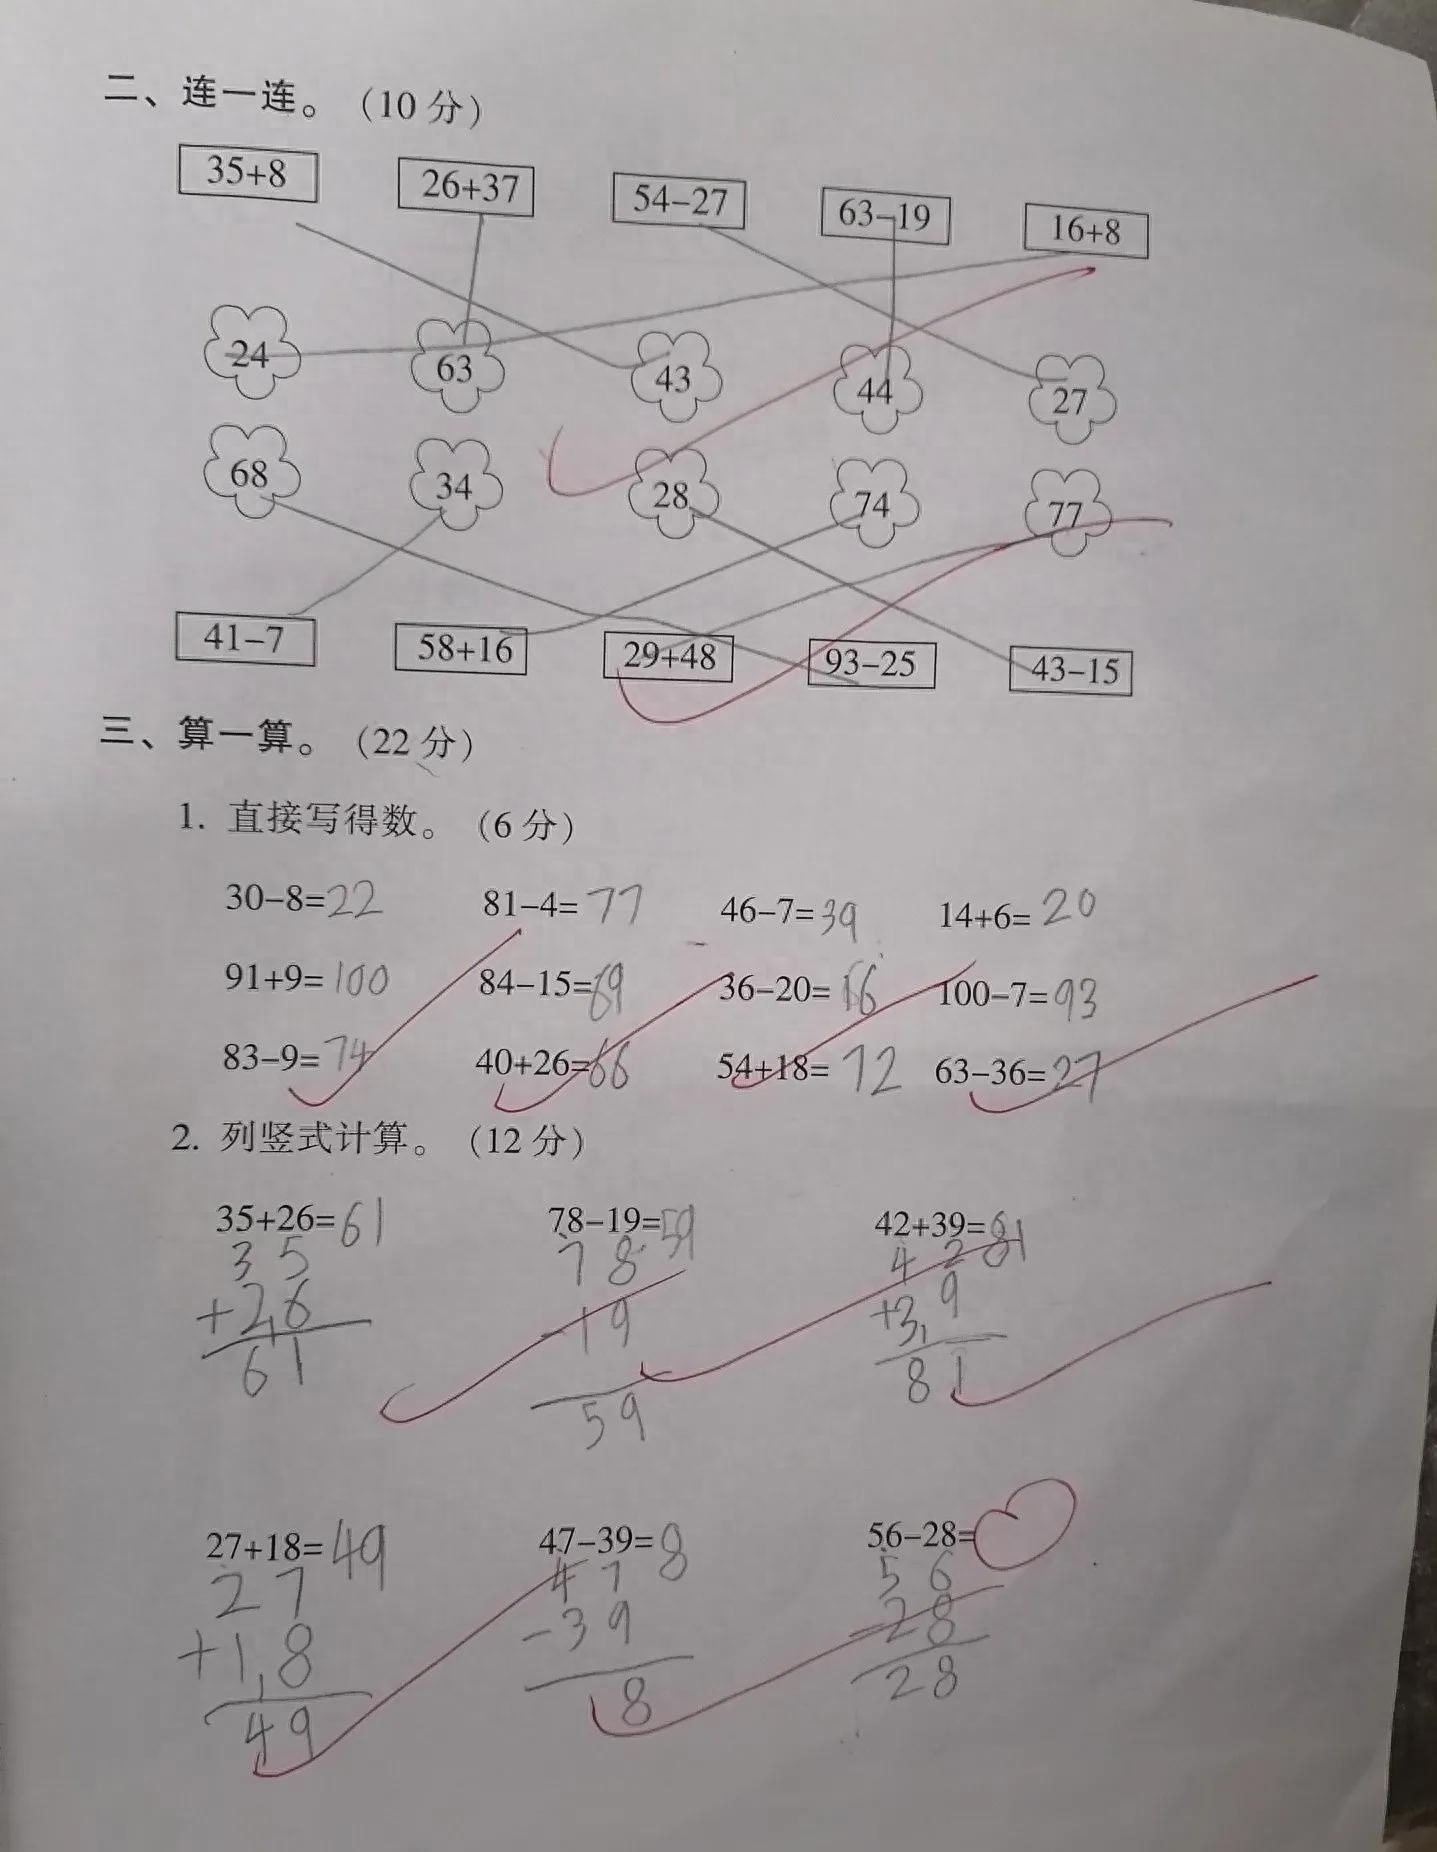 二、连一连。（10 分）
35+8 26+37 54−27 63−19 16+8
24 63 43 44 27
68 34 28 74 77
41−7 58+16 29+48 93−25 43−15
三、算一算。（22 分）
1. 直接写得数。（6 分）
30−8=22 81−4=77 46−7=39 14+6=20
91+9=100 84−15=69 36−20=16 100−7=93
83−9=74 40+26=66 54+18=72 63−36=27
2. 列竖式计算。（12 分）
35+26=61 78−19=59 42+39=81
3 5 7 8 4 2
+2 1 6 −1 9 +3 1 9
6 1 5 9 8 1
27+18=49 47−39=8 56−28=
2 7 4 7 5 6
+1 1 8 −3 9 −2 8
4 9 8 2 8